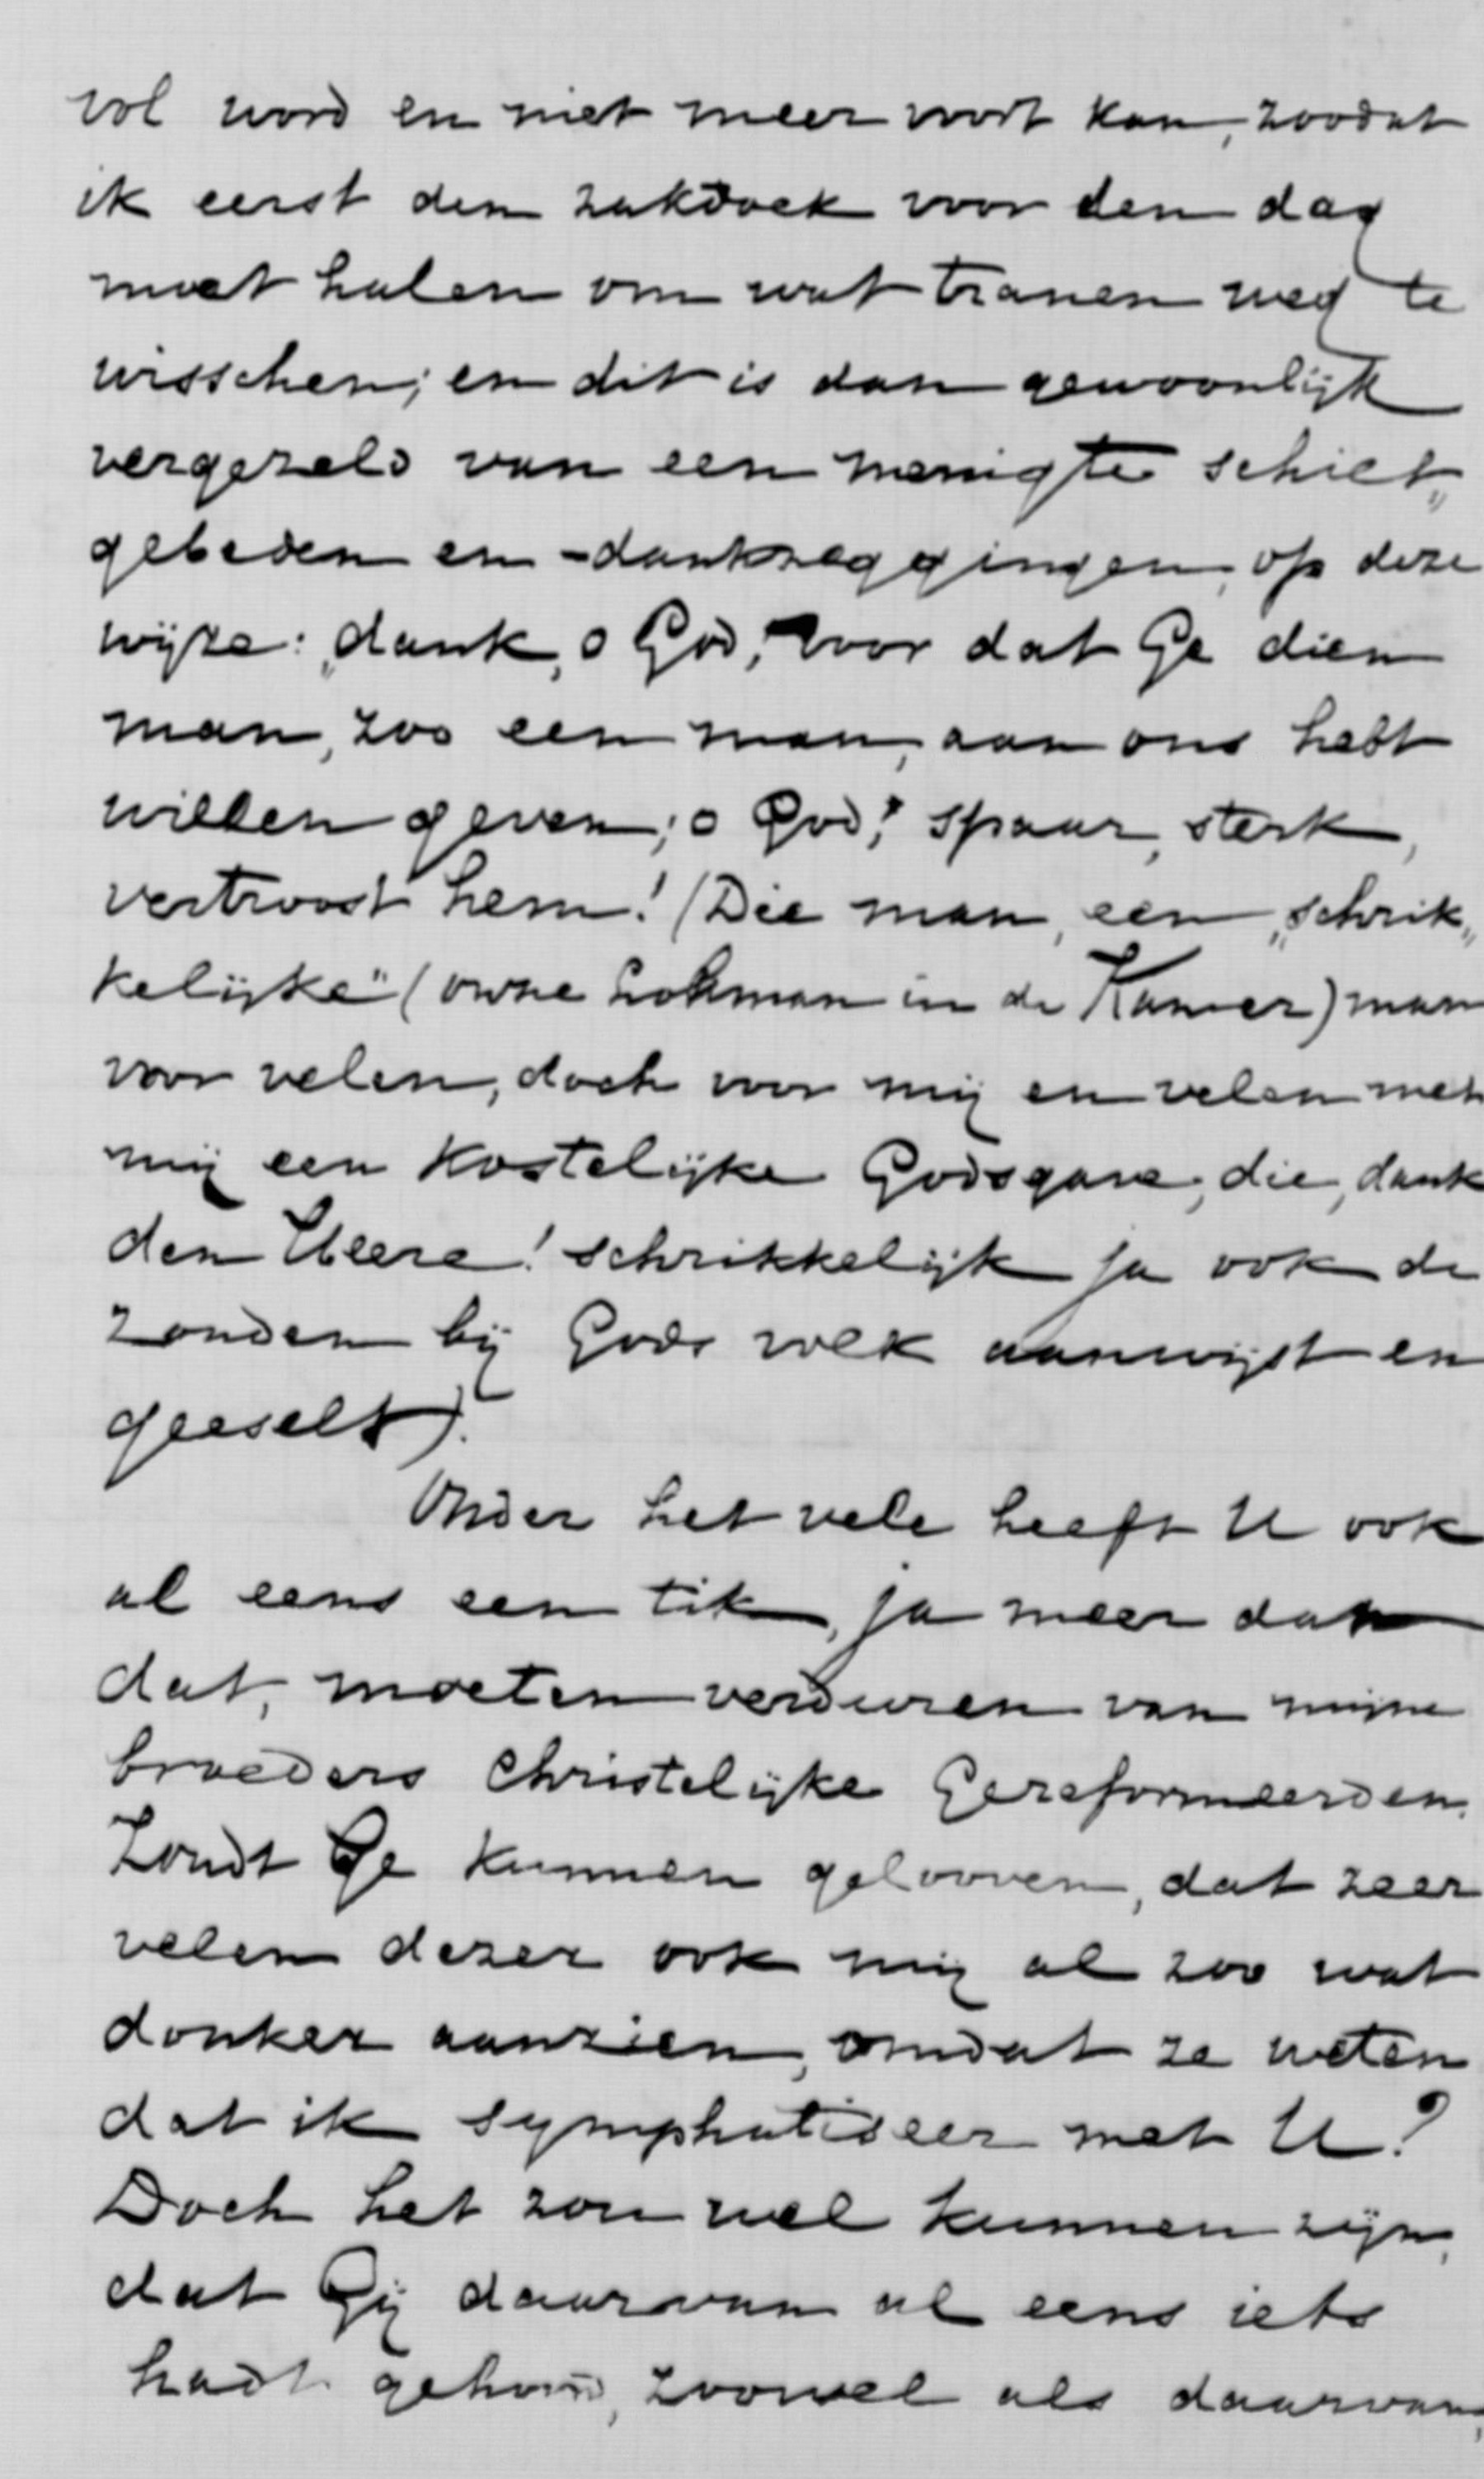 vol word en niet meer voort kan, zoodat
ik eerst den zakdoek voor den dag
moet halen om wat tranen weg te
wisschen; en dit is dan gewoonlijk
vergezeld van een menigte schiet„
gebeden en -dankzeggingen, op deze
wijze: „dank, o God, voor dat Ge dien
man, zoo een man, aan ons hebt
willen geven; o God! spaar, sterk,
vertroost hem! (Die man, een „schrik„
kelijke" (onze Lohman in de Kamer) man
voor velen, doch voor mij en velen met
mij een kostelijke Godsgave, die, dank
den Heere! schrikkelijk ja ook de
zonden bij Gods volk aanwijst en
geeselt).
Onder het vele heeft U ook
al eens een tik, ja meer dan
dat, moeten verduren van mijne
broeders Christelijke Gereformeerden.
Zoudt Ge kunnen gelooven, dat zeer
velen dezer ook mij al zoo wat
donker aanzien, omdat ze weten
dat ik symphatiseer met U?
Doch het zou wel kunnen zijn,
dat Gij daarvan al eens iets
hadt gehoord, zoowel als daarvan,